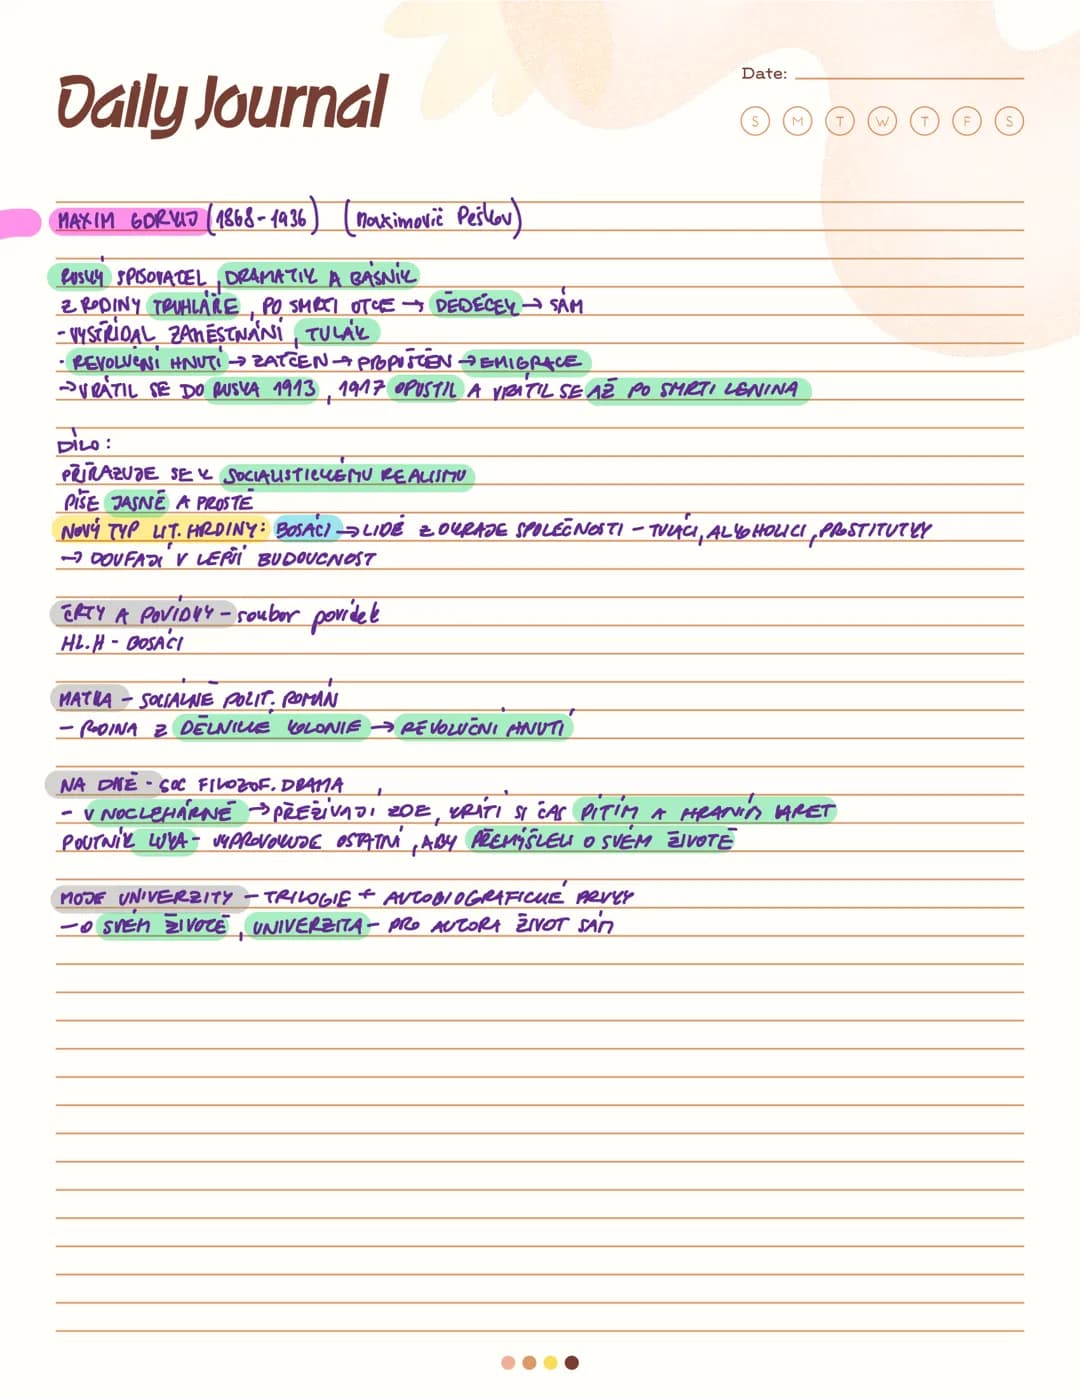 Daily Journal
Date:
S M T W T F S
MAXIM GORKIJ (1868-1936) (Maximovič Peškov)
RUSKÝ SPISOVATEL, DRAMATIK A BÁSNÍK
Z RODINY TRUHLÁŘE, PO SMRTI OTCE → DĚDEČEK → SÁM
- VYSTŘÍDAL ZAMĚSTNÁNÍ, TULÁK
- REVOLUČNÍ HNUTÍ → ZATČEN → PROPUŠTĚN → EMIGRACE
→ VRÁTIL SE DO RUSKA 1913, 1917 OPUSTIL A VRÁTIL SE AŽ PO SMRTI LENINA
DÍLO:
PŘIŘAZUJE SE K SOCIALISTICKÉMU REALISMU
PÍŠE JASNĚ A PROSTĚ
NOVÝ TYP LIT. HRDINY: BOSÁCI → LIDÉ Z OKRAJE SPOLEČNOSTI - TULÁCI, ALKOHOLICI, PROSTITUTKY
→ DOUFAJÍ V LEPŠÍ BUDOUCNOST
ČRTY A POVÍDKY - soubor povídek
HL.H - BOSÁCI
MATKA - SOCIÁLNĚ POLIT. ROMÁN
- RODINA Z DĚLNICKÉ KOLONIE → REVOLUČNÍ HNUTÍ
NA DNĚ - SOC FILOZOF. DRAMA
- V NOCLEHÁRNĚ → PŘEŽÍVAJÍ ZDE, KRÁTÍ SI ČAS PITÍM A HRANÍM KARET
POUTNÍK LUKA - VYPROVOKUJE OSTATNÍ, ABY PŘEMÝŠLELI O SVÉM ŽIVOTĚ
MOJE UNIVERZITY - TRILOGIE + AUTOBIOGRAFICKÉ PRVKY
- O SVÉM ŽIVOTĚ, UNIVERZITA - PRO AUTORA ŽIVOT SÁM